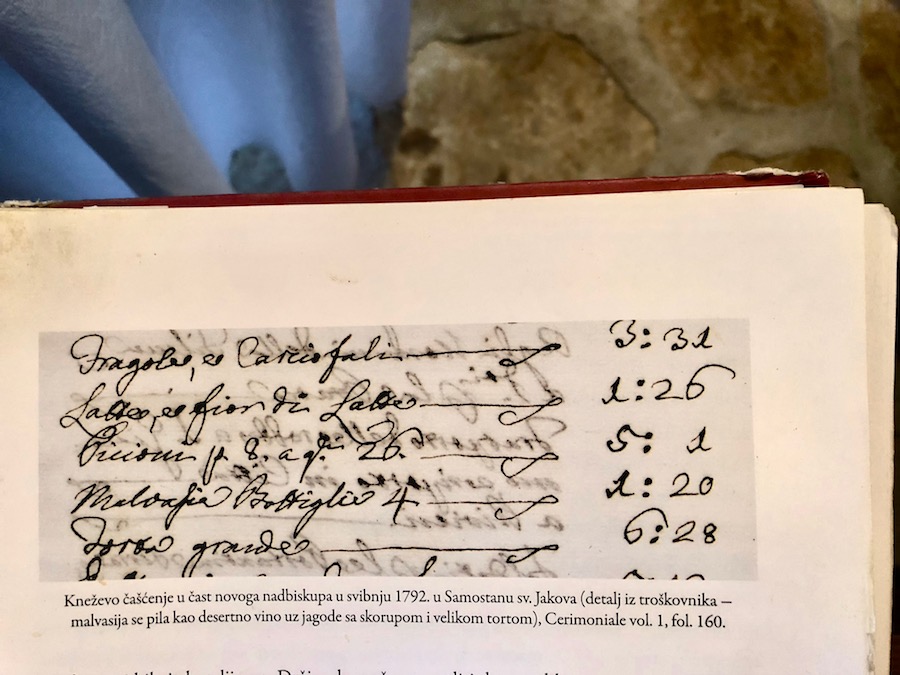 Fragole, e Carciofali 3: 31
Latte, e fior di Latte 1: 26
Picioni p. 8. a g.ni 26. 5: 1
Malvasia Bottiglie 4 1: 20
Torta grande 6: 28
Kneževo čašćenje u čast novoga nadbiskupa u svibnju 1792. u Samostanu sv. Jakova (detalj iz troškovnika –
malvasija se pila kao desertno vino uz jagode sa skorupom i velikom tortom), Cerimoniale vol. 1, fol. 160.